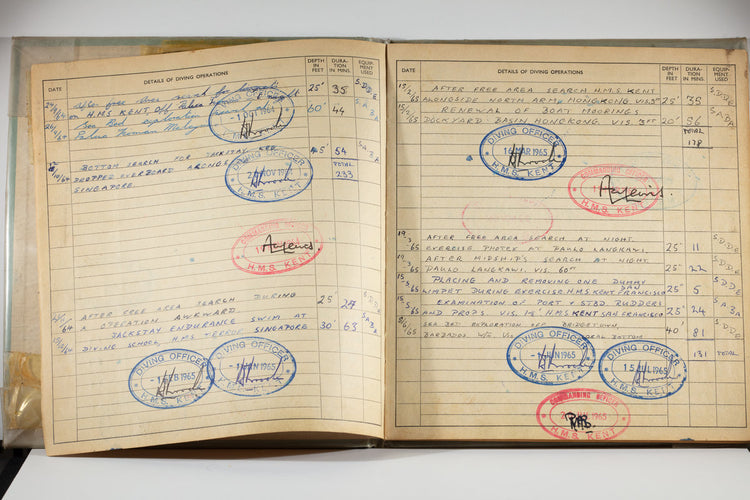 DATE
DETAILS OF DIVING OPERATIONS
DEPTH IN FEET
DURATION IN MINS.
EQUIPMENT USED
25' 35 S.D.D.E
on H.M.S KENT, Off Pulau
60' 44 S.A.B.A
Sea Bed exploration
Pulau Tioman Malaya
DIVING OFFICER
1964
BOTTOM SEARCH FOR
45 54 S.A.B.A
DROPPED OVERBOARD
TOTAL
SINGAPORE.
233
DIVING OFFICER
NOV 1964
H.M.S. KENT
COMMANDING OFFICER
H.M.S. KENT
AFTER FREE AREA SEARCH DURING
25 27 S.D.D.E
OPERATION AWKWARD
JACKSTAY ENDURANCE SWIM AT
30' 63 S.A.B.A
DIVING SCHOOL, H.M.S TERROR, SINGAPORE
DIVING OFFICER
FEB 1965
H.M.S. KENT
DIVING OFFICER
1965
H.M.S. KENT
DATE
DETAILS OF DIVING OPERATIONS
DEPTH IN FEET
DURATION IN MINS.
EQUIPMENT USED
15/2/65 AFTER FREE AREA SEARCH H.M.S. KENT
ALONGSIDE NORTH ARM, HONGKONG. VIS. 5' 25' 35 S.D.D.E
15/2/65 RENEWAL OF BOAT MOORINGS
DOCKYARD BASIN HONGKONG. VIS. 3FT 20' 56 S.A.B.A
TOTAL
178
DIVING OFFICER
MAR 1965
H.M.S. KENT
COMMANDING OFFICER
H.M.S. KENT
19/3/65 AFTER FREE AREA SEARCH AT NIGHT.
EXERCISE PHOTEX AT PAULO LANGKAWI. 25' 11 S.D.D.E
AFTER MIDSHIPS SEARCH AT NIGHT.
PAULO LANGKAWI. VIS. 60' 25' 22 S.D.D.E
PLACING AND REMOVING ONE DUMMY
LIMPET DURING EXERCISE. H.M.S KENT SAN FRANCISCO 25' 5 S.D.D.E
EXAMINATION OF PORT & STBD RUDDERS
AND PROPS. VIS. 12'. H.M.S KENT SAN FRANCISCO 25' 24 S.A.B.A
SEA BED EXPLORATION OFF BRIDGETOWN,
BARBADOS. CORAL BOTTOM 40' 81 S.D.D.E
131 TOTAL
DIVING OFFICER
JUN 1965
H.M.S. KENT
DIVING OFFICER
15 JUL 1965
H.M.S. KENT
COMMANDING OFFICER
1965
H.M.S. KENT